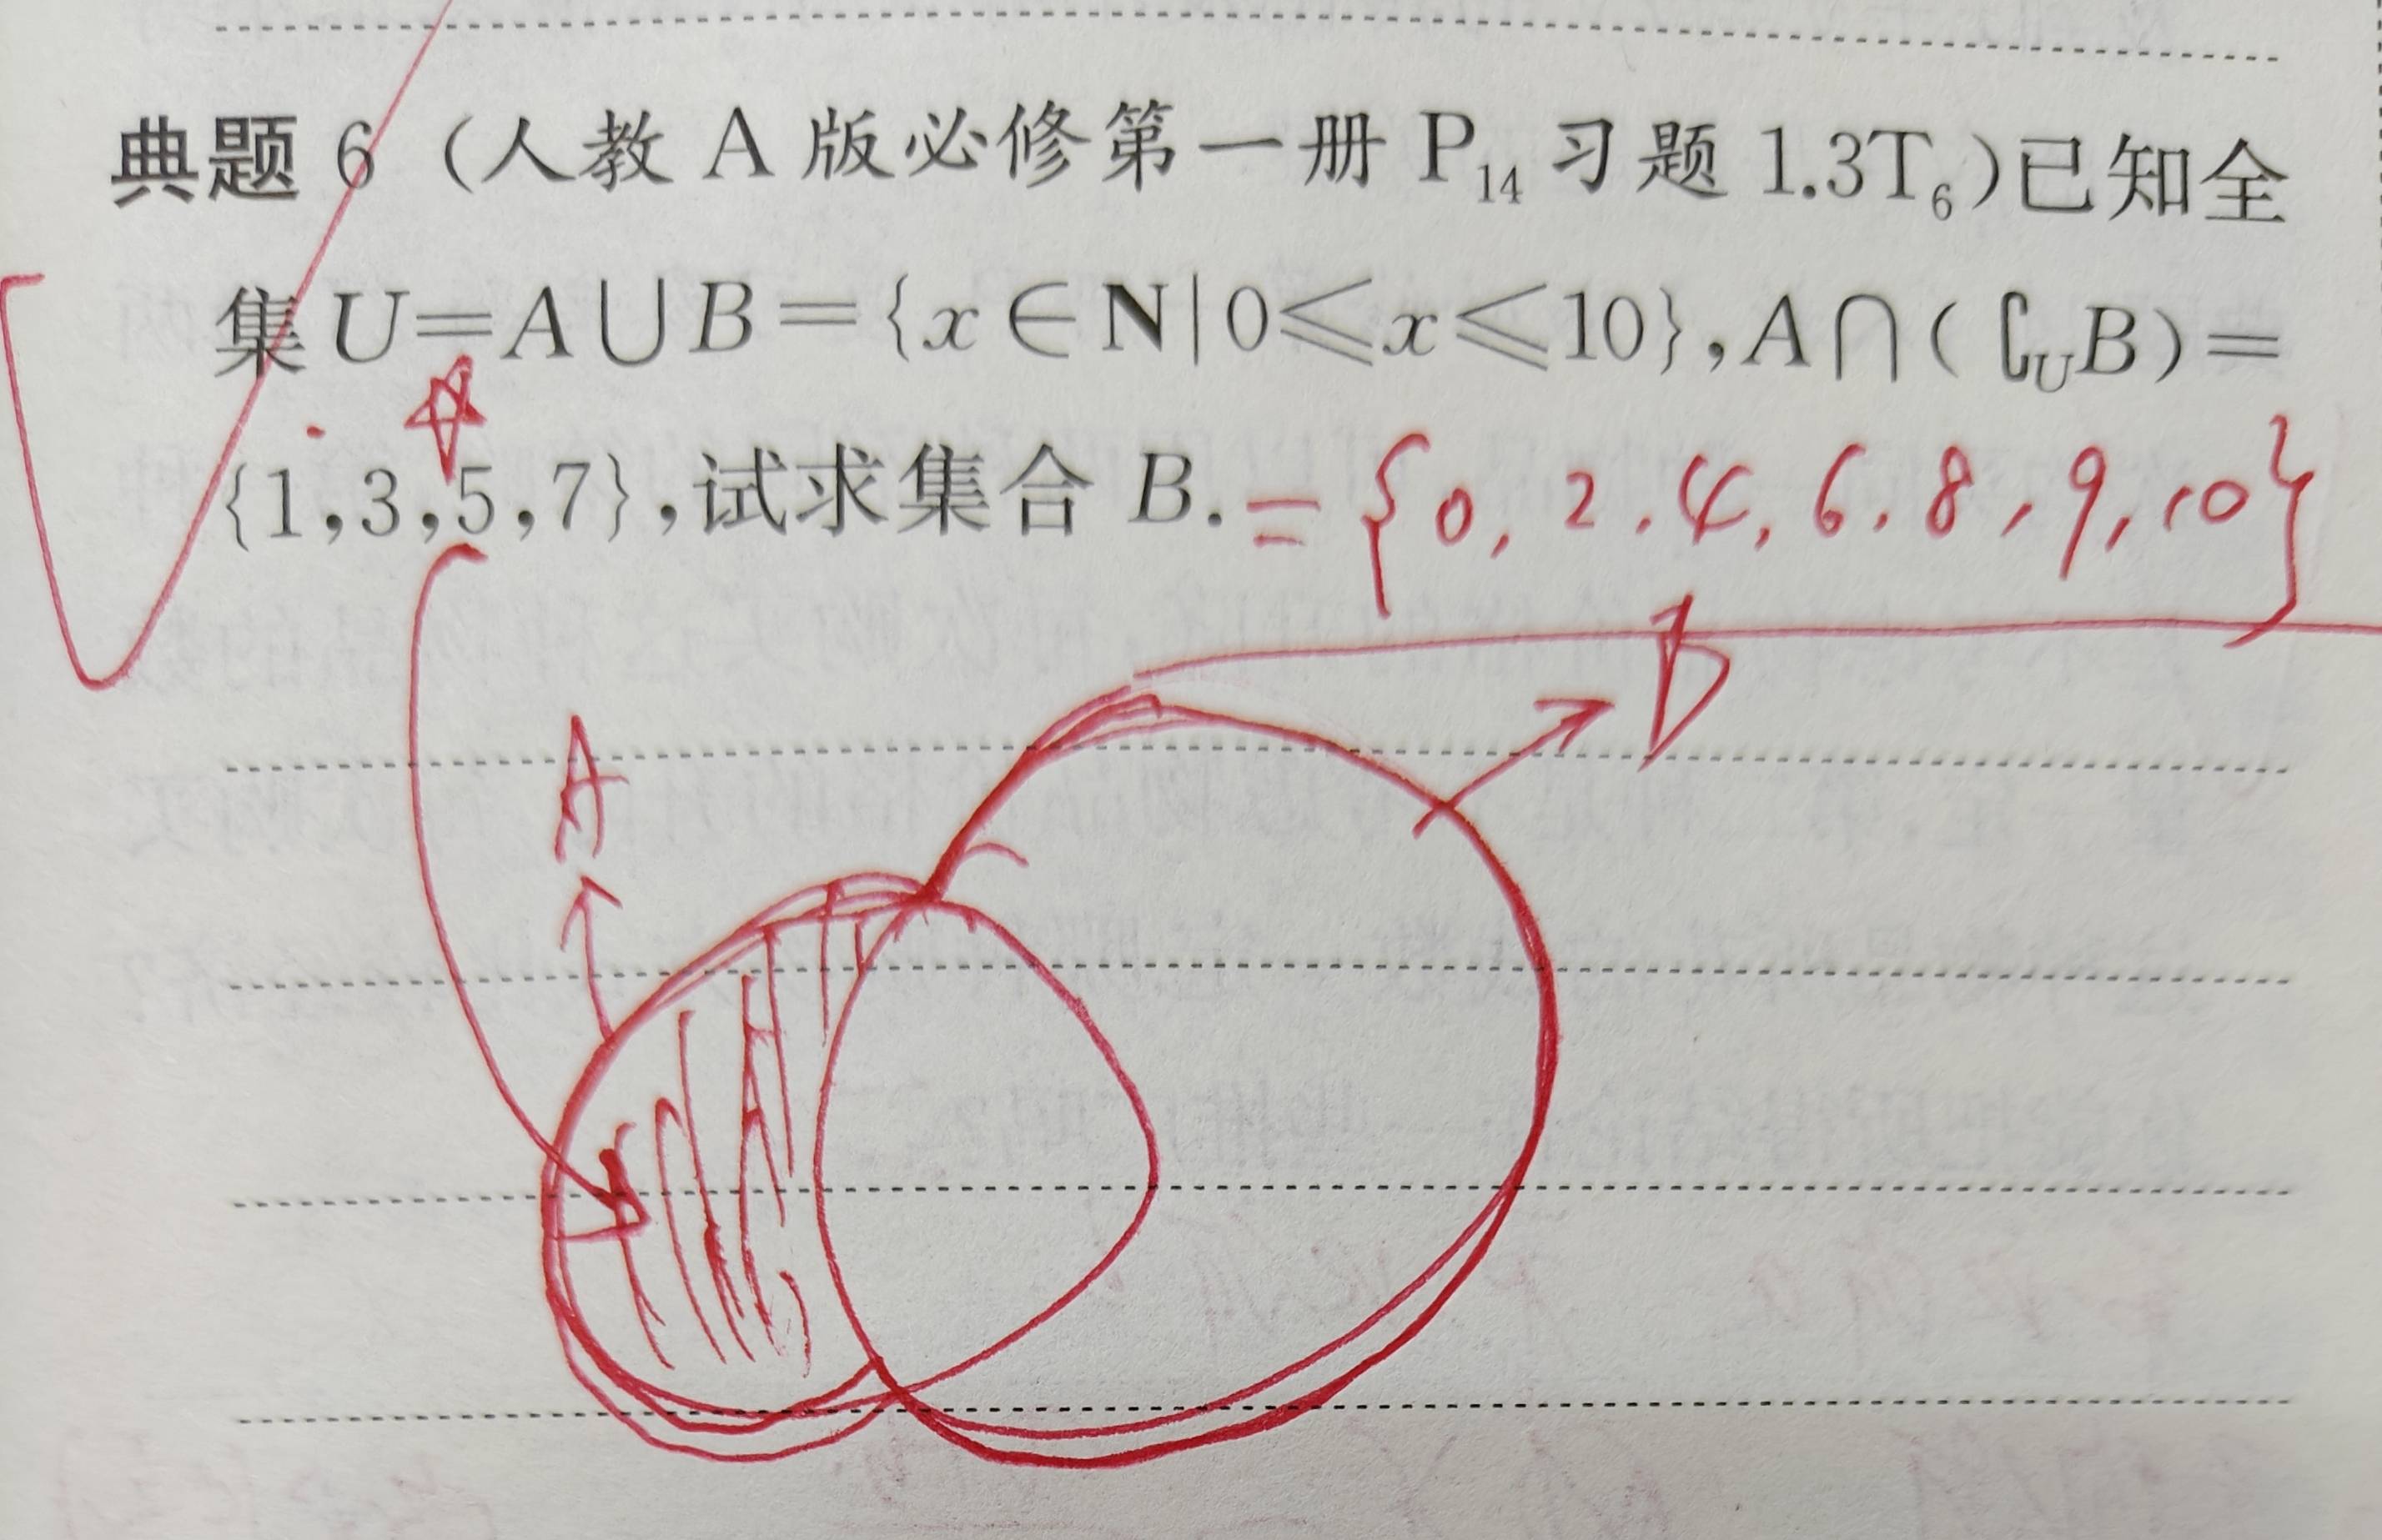 典题 6 (人教 A 版必修第一册 P₁₄ 习题 1.3T₆)已知全
集 U=A∪B={x∈N|0≤x≤10},A∩(∁ᵤB)=
{1,3,5,7},试求集合 B. = {0, 2, 4, 6, 8, 9, 10}
B
A